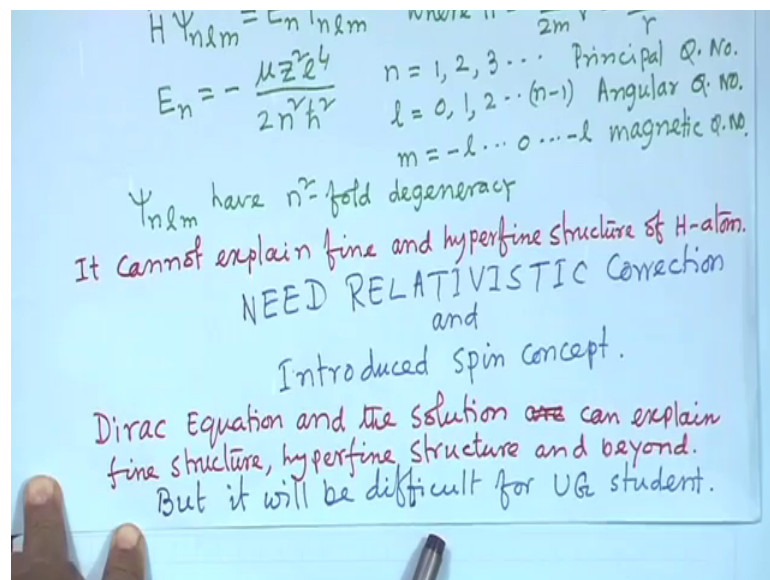 H Ψnlm = En Ψnlm where
2m r
En = - μz²e⁴ / 2n²ħ² n = 1, 2, 3 ... Principal Q. No.
l = 0, 1, 2 .. (n-1) Angular Q. NO.
m = -l ... 0 ... -l magnetic Q. NO.
Ψnlm have n²-fold degeneracy
It cannot explain fine and hyperfine structure of H-atom.
NEED RELATIVISTIC Correction
and
Introduced spin concept.
Dirac Equation and the solution can explain
fine structure, hyperfine structure and beyond.
But it will be difficult for UG student.